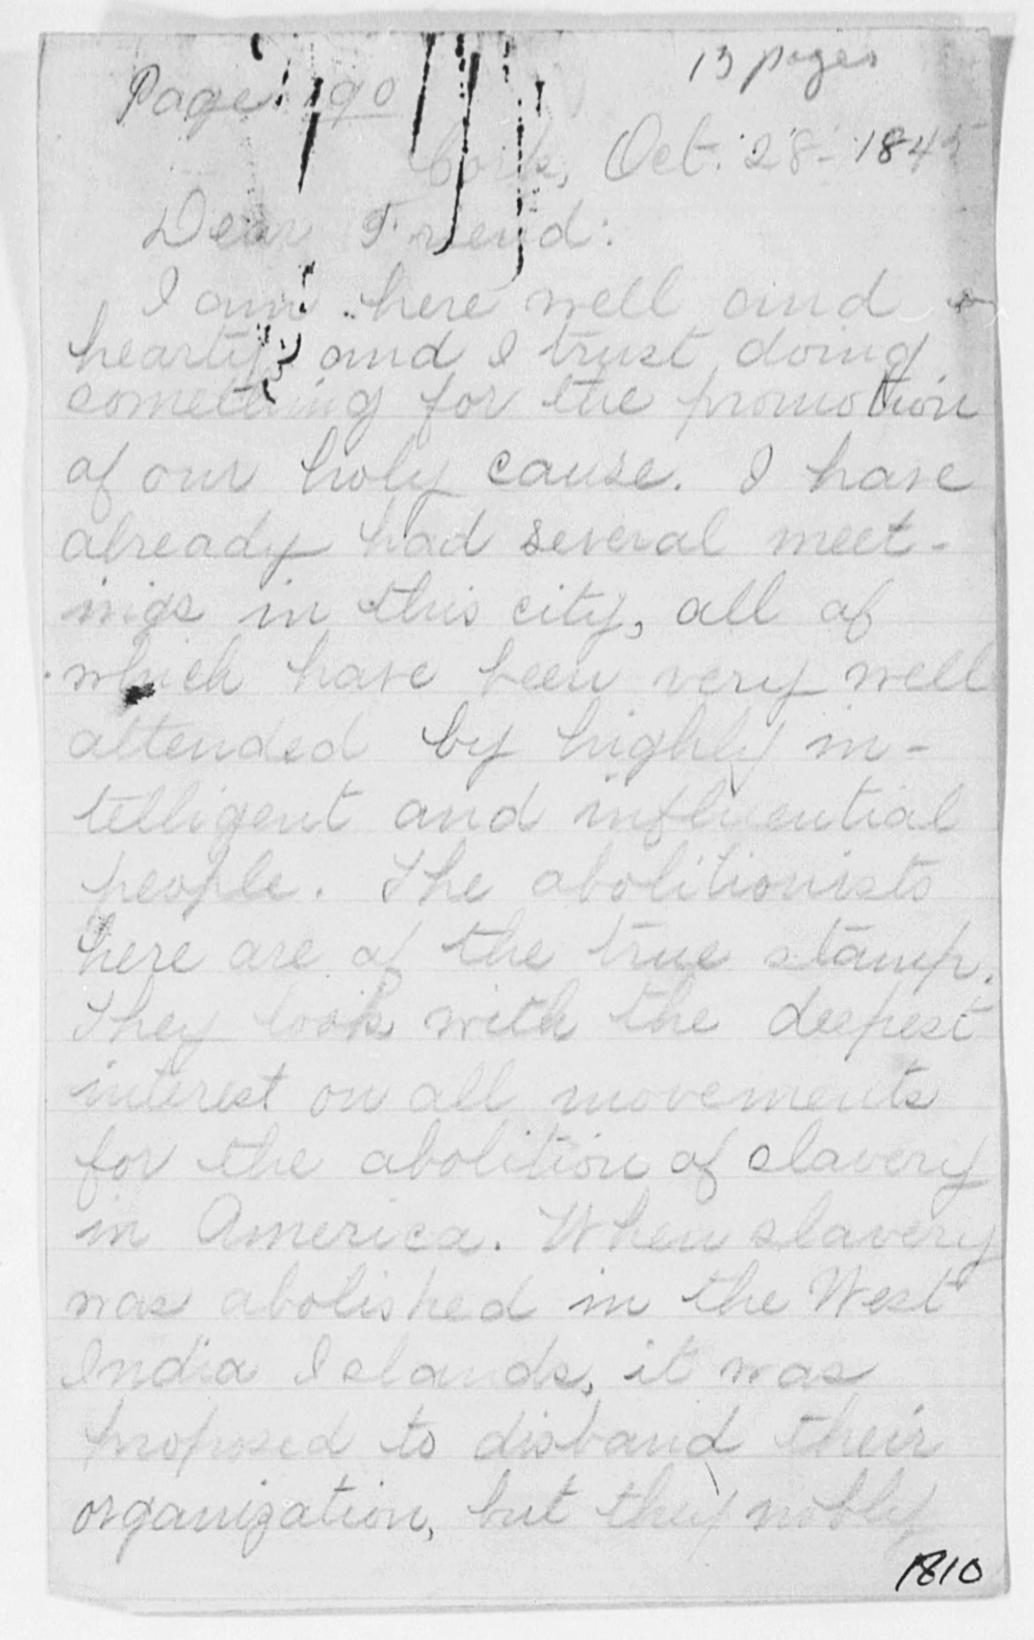 13 pages
Page 190
Cork, Oct. 28 - 1845
Dear Friend:
I am here well and
hearty, and I trust doing
something for the promotion
of our holy cause. I have
already had several meet-
ings in this city, all of
which have been very well
attended by highly in-
telligent and influential
people. The abolitionists
here are of the true stamp.
They look with the deepest
interest on all movements
for the abolition of slavery
in America. When slavery
was abolished in the West
India Islands, it was
proposed to disband their
organization, but they nobly
1810